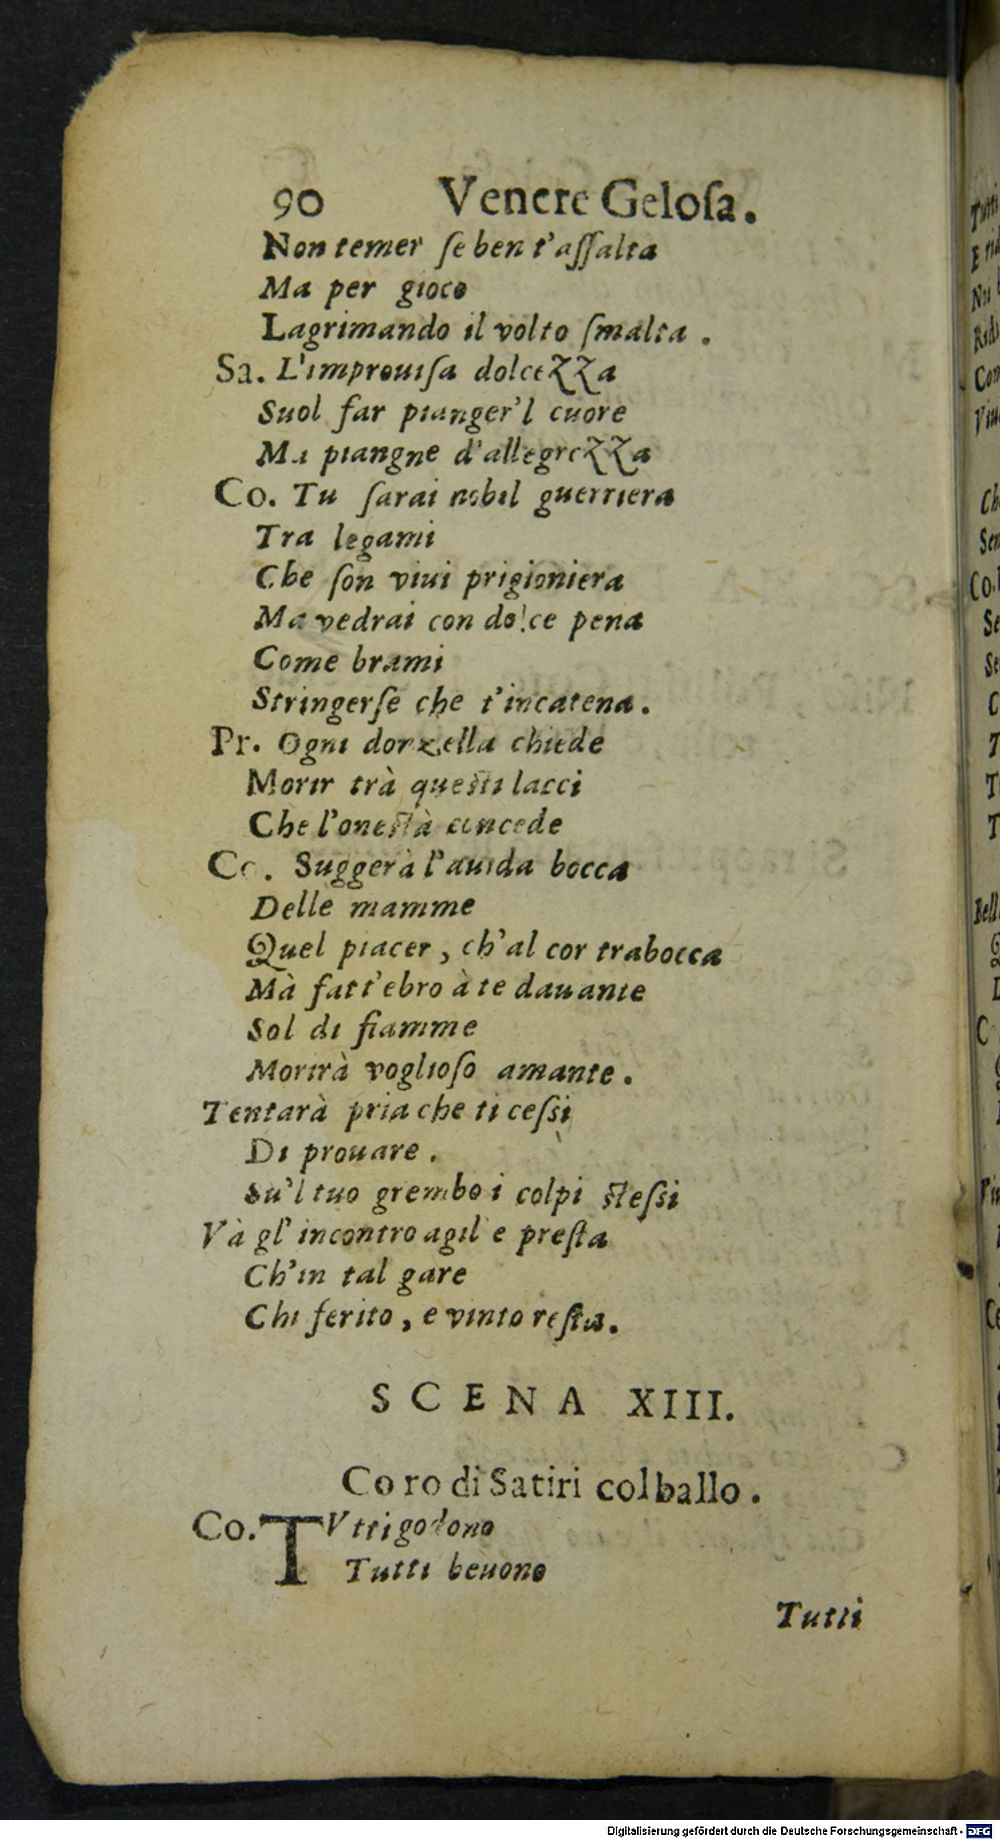 90 Venere Geloſa.
Non temer ſe ben t'aſſalta
Ma per gioco
Lagrimando il volto ſmalta.
Sa. L'improuiſa dolcezza
Suol far pianger'l cuore
Ma piangne d'allegrezza
Co. Tu ſarai nobil guerriera
Tra legami
Che ſon viui prigioniera
Ma vedrai con dolce pena
Come brami
Stringerſe che t'incatena.
Pr. Ogni donzella chiede
Morir trà queſti lacci
Che l'oneſtà concede
Co. Suggerà l'auida bocca
Delle mamme
Quel piacer, ch'al cor trabocca
Mà fatt'ebro à te dauante
Sol di fiamme
Morirà voglioſo amante.
Tentarà pria che ti ceſsi
Di prouare.
Su'l tuo grembo i colpi ſteſsi
Và gl'incontro agil e preſta
Ch'in tal gare
Chi ferito, e vinto reſta.
SCENA XIII.
Coro di Satiri col ballo.
Co. TVtti godono
Tutti beuono
Tutti
Tutti
E rid
Nu
Rid
Com
Viu
Ch
Sen
Co.
Se
Se
C
T
T
T
Bell
Q
L
C
Digitalisierung gefördert durch die Deutsche Forschungsgemeinschaft - DFG